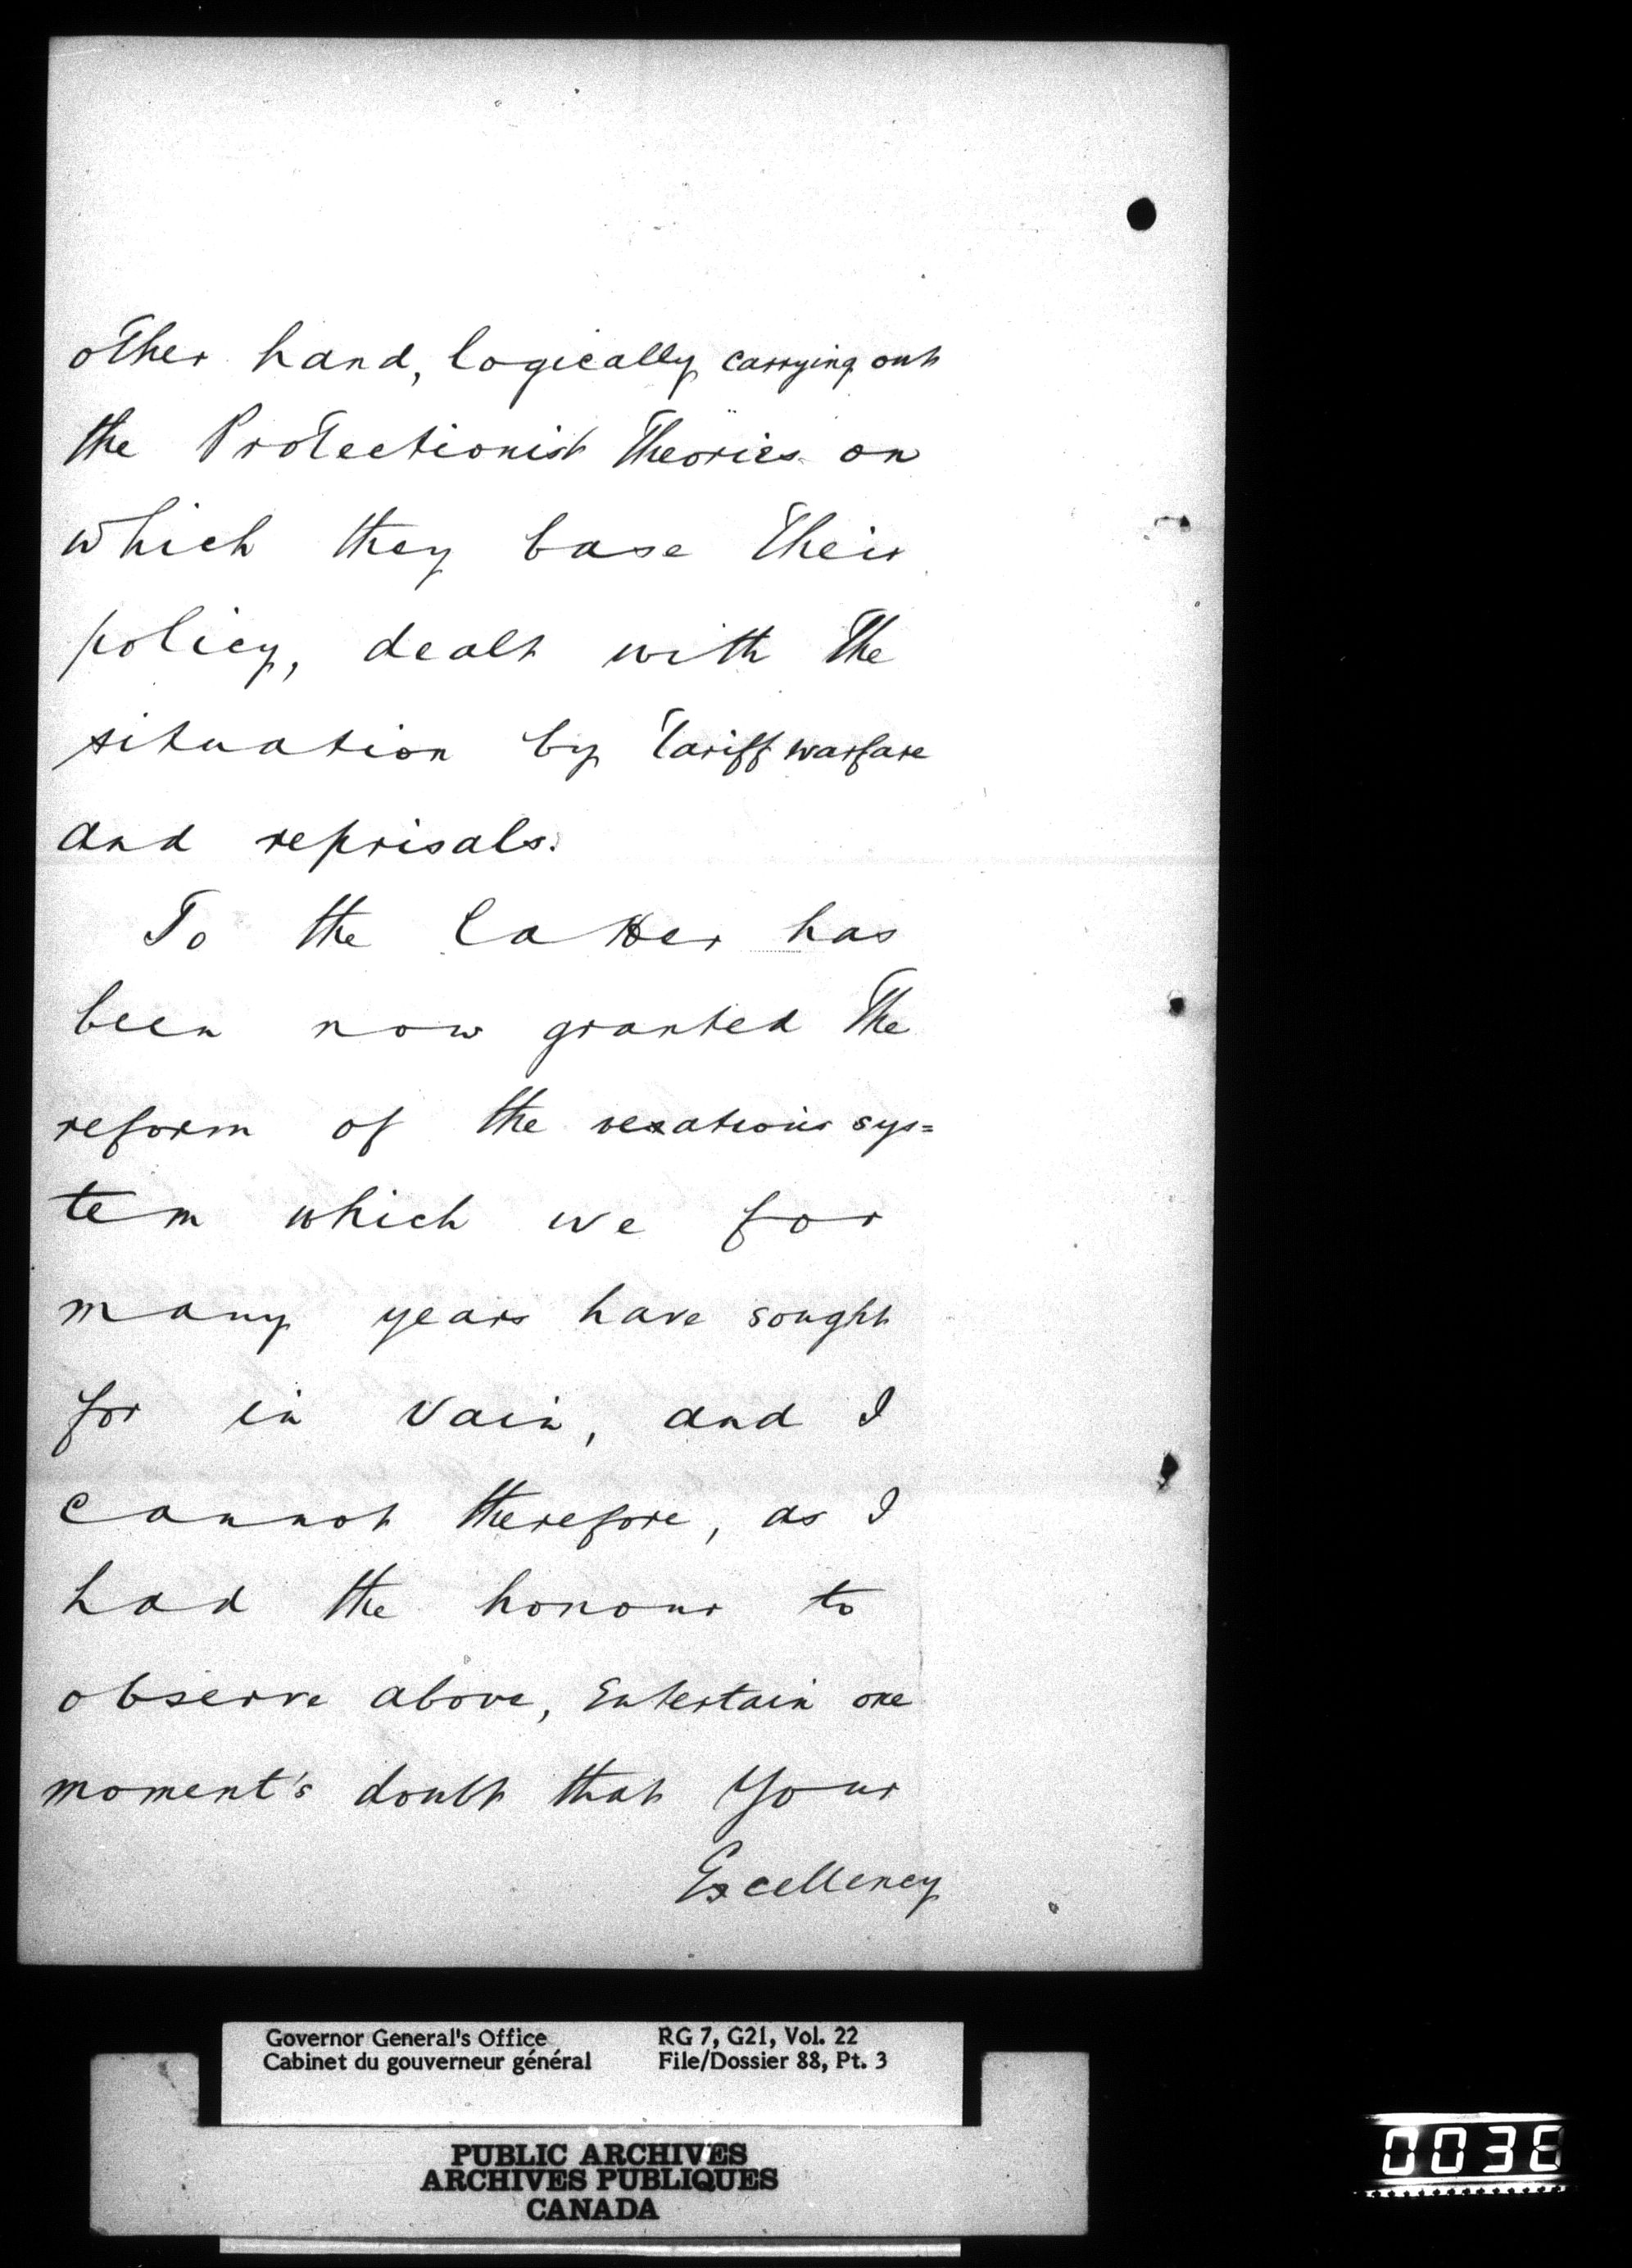 other hand, logically carrying out
the Protectionist Theories on
which they base their
policy, dealt with the
situation by Tariff warfare
and reprisals.
To the latter has
been now granted the
reform of the vexatious sys=
tem which we for
many years have sought
for in vain, and I
cannot therefore, as I
had the honour to
observe above, entertain one
moment's doubt that Your
Excellency
Governor General's Office
Cabinet du gouverneur général
RG 7, G21, Vol. 22
File/Dossier 88, Pt. 3
PUBLIC ARCHIVES
ARCHIVES PUBLIQUES
CANADA